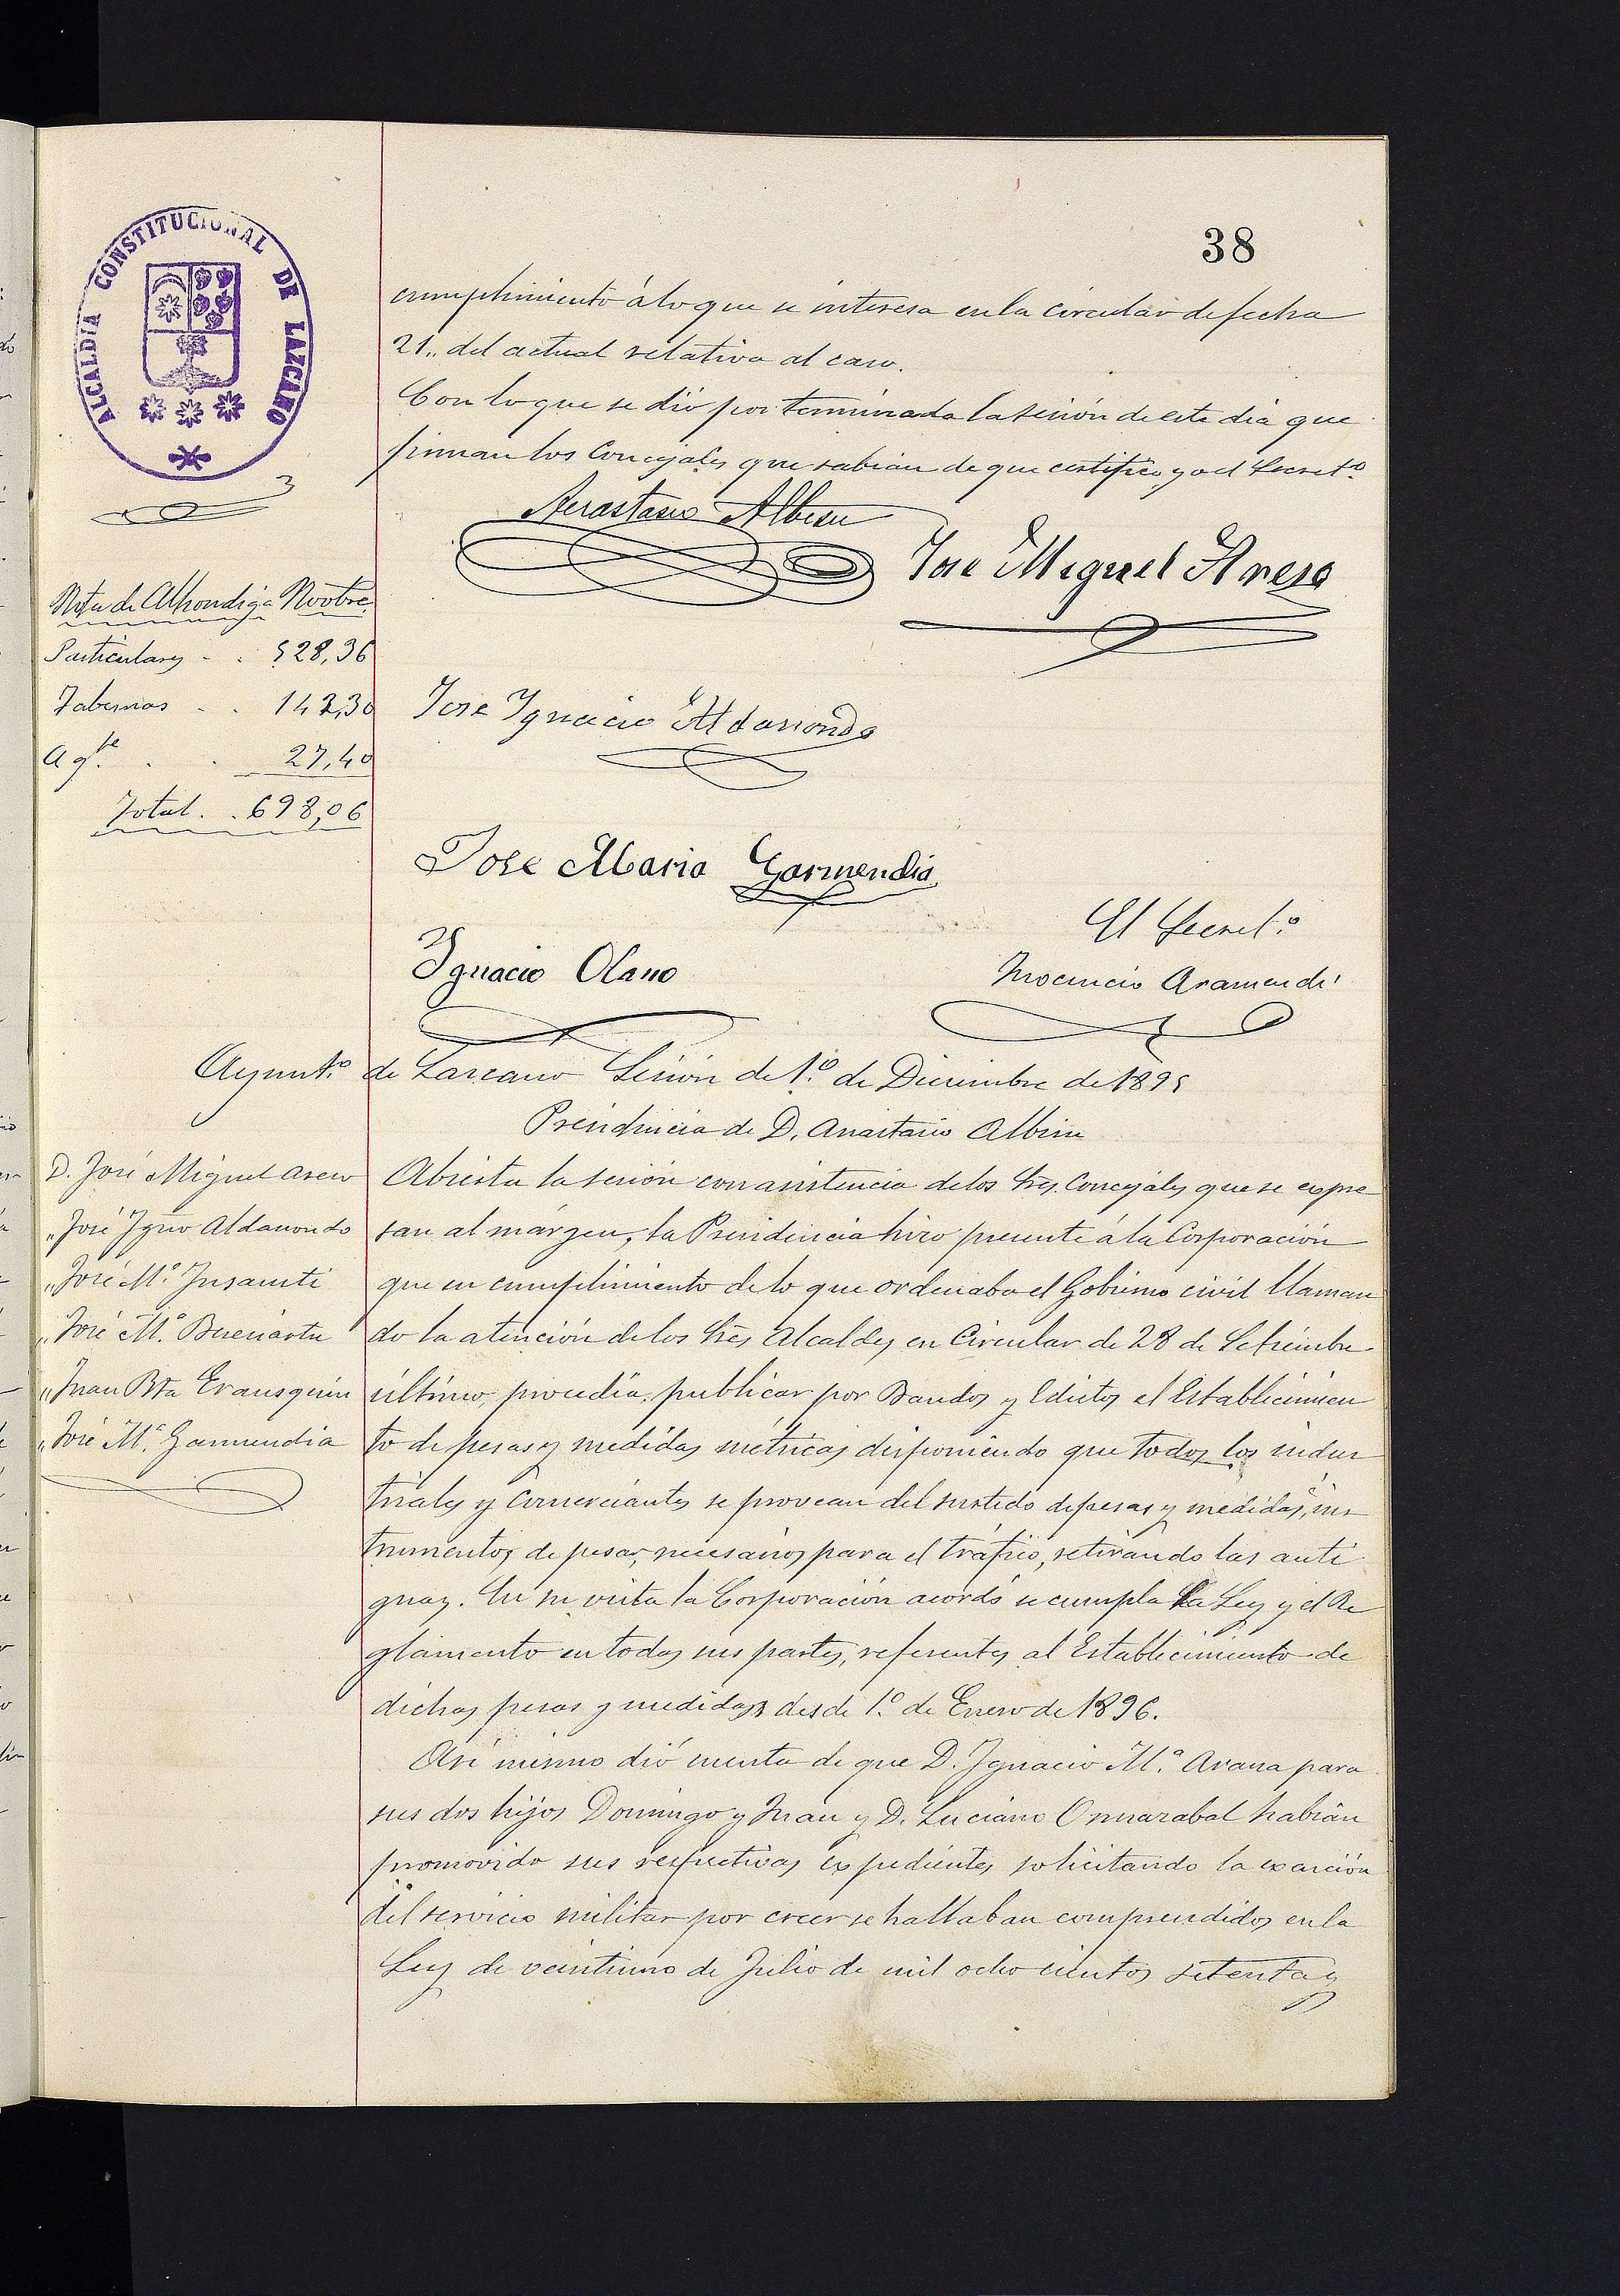 38
ALCALDÍA CONSTITUCIONAL DE LAZCANO
cumplimiento á lo que se interesa en la circular de fecha
21,, del actual relativa al caso.
Con lo que se dió por terminada la sesión de este dia que
firman los Concejales que sabian de que certifico yo el Secretº
Anastasio Albisu
José Miguel Areso
Nota de Alhondiga Novbre
Particulares . . 528,36
Tabernas . . 142,30
Agte . . 27,40
Total . . 698,06
Jose Ygnacio Aldasoro
Jose Maria Garmendia
El Secretº
Ygnacio Olano
Inocencio Aramendi
Ayuntº de Lazcano Sesión de 1º de Diciembre de 1895
Presidencia de D. Anastasio Albisu
D. José Miguel Areso
" José Ygnº Aldasondo
" José Mª Insausti
" José Mª
" Juan Bta Erausquin
" José Mª Garmendia
Abierta la sesión con asistencia de los Sres. Concejales que se expre
san al márgen, la Presidencia hizo presente á la Corporación
que en cumplimiento de lo que ordenaba el Gobierno civil llaman
do la atención de los Sres Alcaldes en Circular de 28 de Setiembre
último, procedia, publicar por Bandos y Edictos el Establecimien
to de pesas y medidas métricas disponiendo que todos los indus
triales y comerciantes se provean del surtido de pesas y medidas, ins
trumentos de pesar, necesarios para el tráfico, retirando las anti
guas. En su vista la Corporación acordó se cumpla la Ley y el Re
glamento en todas sus partes, referentes al Establecimiento de
dichas pesas y medidas desde 1º de Enero de 1896.
Asi mismo dió cuenta de que D. Ygnacio Mª Arana para
sus dos hijos Domingo y Juan y D. Luciano habian
promovido sus respectivos expedientes solicitando la exención
del servicio militar por creer se hallaban comprendidos en la
Ley de veintiuno de Julio de mil ocho cientos setenta y